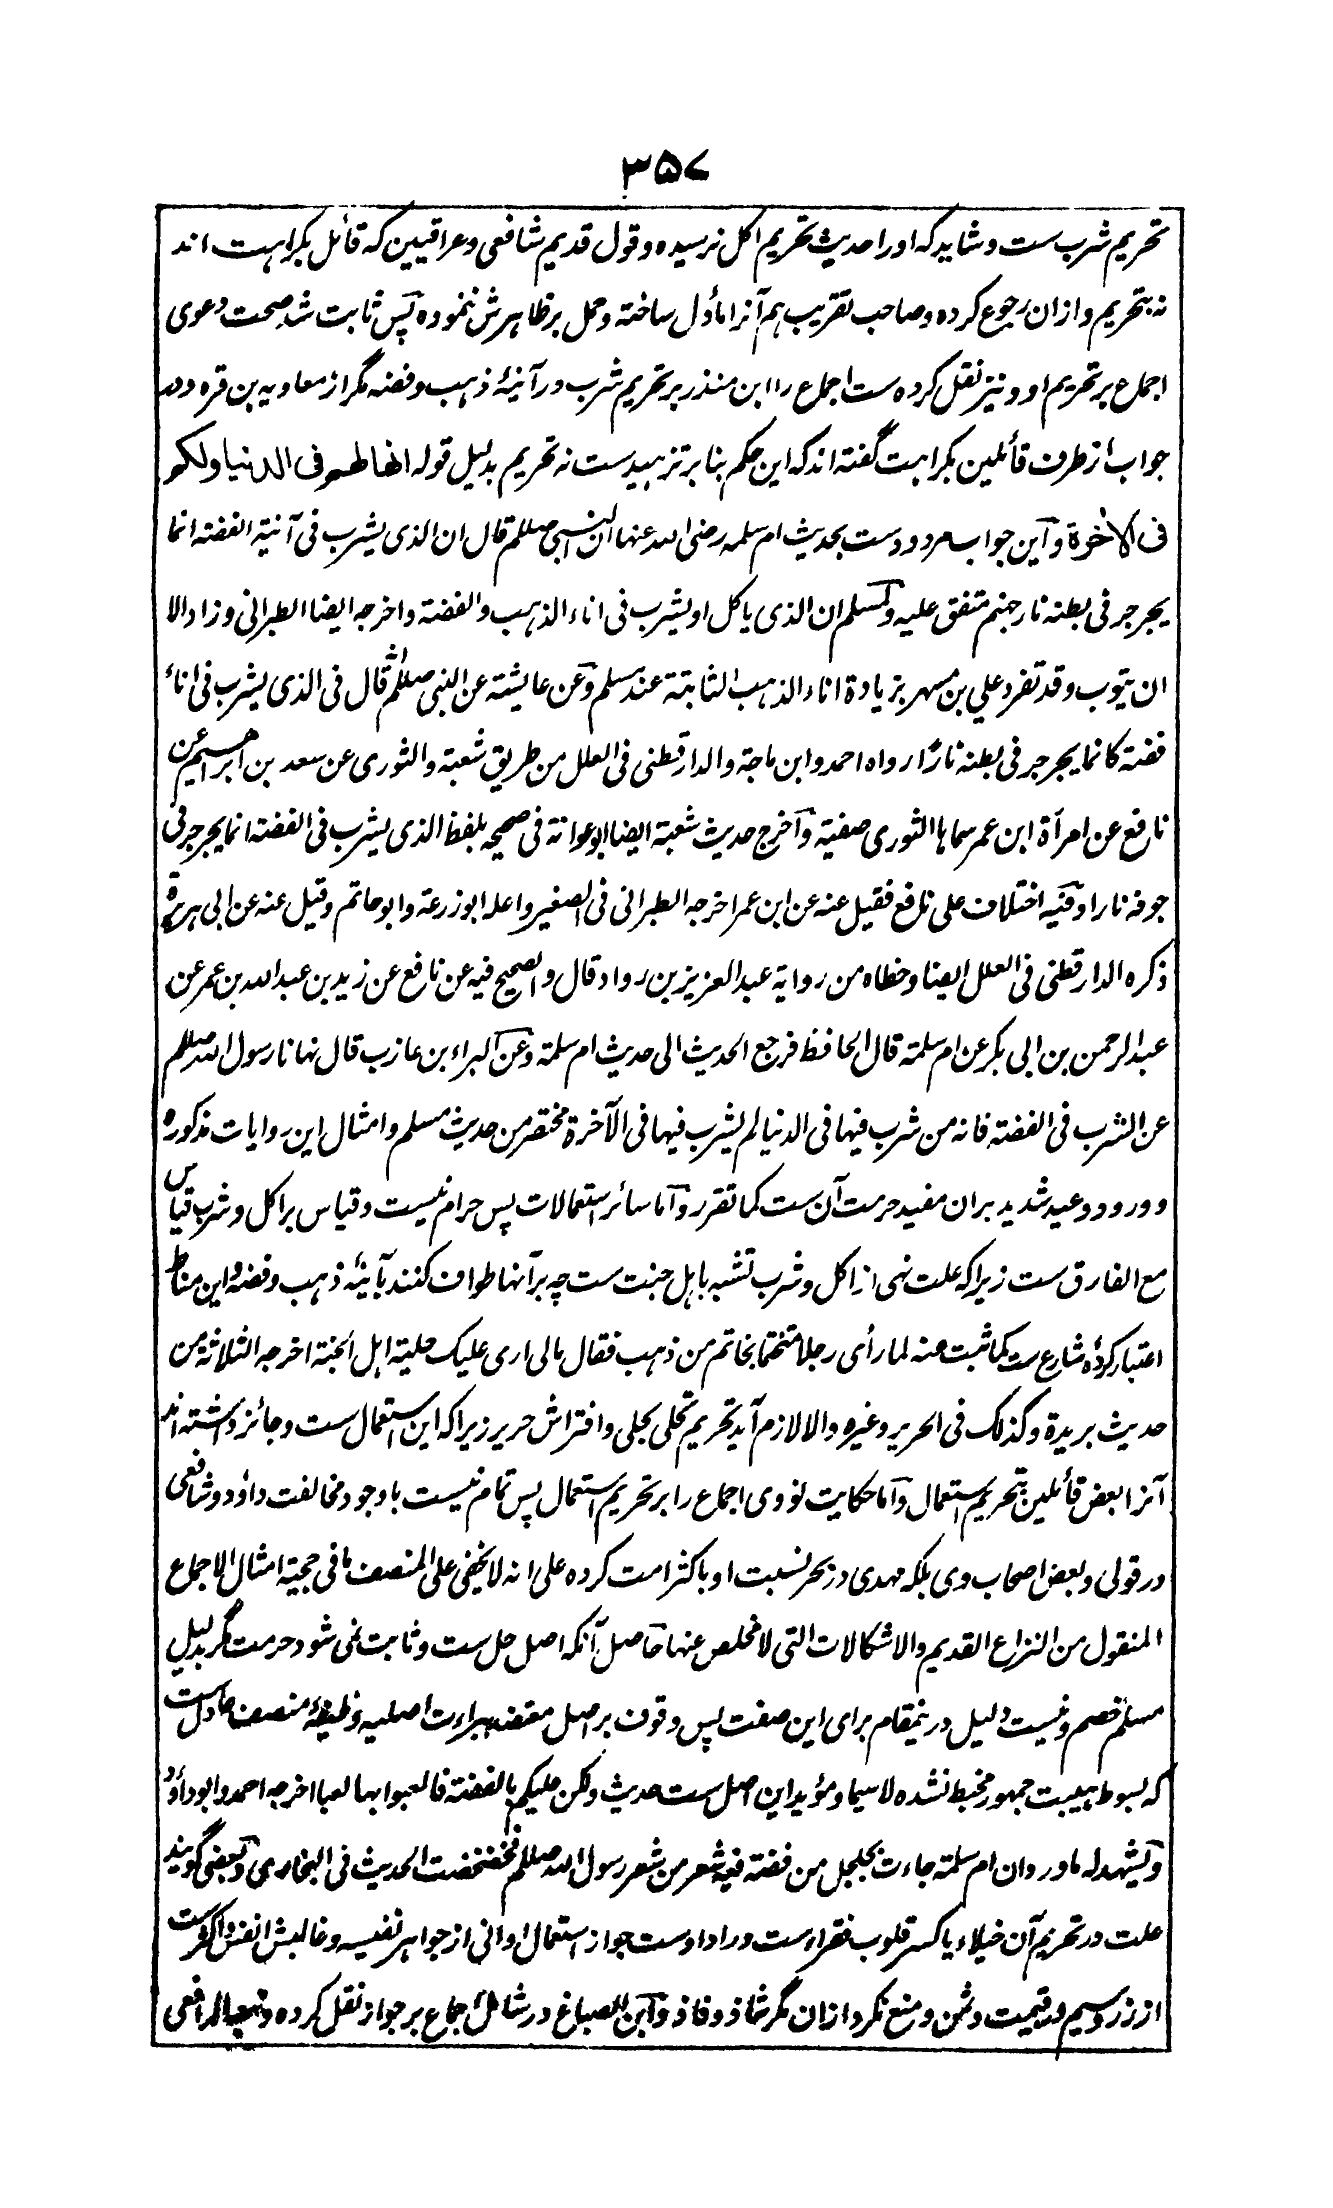 ۳۵۷
تحریم شرب ست و شاید که اورا حدیث تحریم اکل نرسیده و قول قدیم شافعی و عراقیین که قائل بکراهت اند
نه بتحریم و ازان رجوع کرده و صاحب تقریب هم آنرا مأول ساخته و حمل بر ظاهرش ننموده پس ثابت شد صحت دعوی
اجماع بر تحریم او و نیز نقل کرده ست اجماع را ابن منذر بر تحریم شرب در آنیۀ ذهب و فضه مگر از معاویه بن قره و در
جواب از طرف قائلین بکراهت گفته اند که این حکم بنا بر تزهید ست نه تحریم بدلیل قوله انها لهم فی الدنیا ولکم
فی الاخرة و این جواب مردود ست بحدیث ام سلمه رضی الله عنها ان النبی صللم قال ان الذی یشرب فی آنیة الفضته انما
یجرجر فی بطنه نار جهنم متفق علیه و لمسلم ان الذی یاکل او یشرب فی اناء الذهب والفضته و اخرجه ایضا الطبرانی و زاد الا
ان یتوب و قد تفرد علی بن مسهر بزیادة اناء الذهب الثابتة عند مسلم و عن عایشته عن النبی صللم انه قال فی الذی یشرب فی اناء
فضته کانما یجرجر فی بطنه نارًا رواه احمد و ابن ماجة والدارقطنی فی العلل من طریق شعبة والثوری عن سعد بن ابراهیم عن
نافع عن امرأة ابن عمر سماها الثوری صفیته و اخرج حدیث شعبة ایضا ابو عوانة فی صحیحه بلفظ الذی یشرب فی الفضته انما یجرجر فی
جوفه نارا و فیه اختلاف علی نافع فقیل عنه عن ابن عمر اخرجه الطبرانی فی الصغیر و اعله ابوزرعة و ابوحاتم و قیل عنه عن ابی هریرة
ذکره الدارقطنی فی العلل ایضا و خطاه من روایة عبدالعزیز بن رواد قال و الصحیح فیه عن نافع عن زید بن عبدالله بن عمر عن
عبدالرحمن بن ابی بکر عن ام سلمته قال الحافظ فرجع الحدیث الی حدیث ام سلمته و عن البراء بن عازب قال نهانا رسول الله صللم
عن الشرب فی الفضته فانه من شرب فیها فی الدنیا لم یشرب فیها فی الآخرة مختصر من حدیث مسلم و امثال این روایات مذکوره
و ورود وعید شدید بران مفید حرمت آن ست کما تقرر و اما سائر استعمالات پس حرام نیست و قیاس بر اکل و شرب قیاس
مع الفارق ست زیرا که علت نهی از اکل و شرب تشبه باهل جنت ست چه بر آنها طواف کنند بآنیۀ ذهب و فضه و این مناط
اعتبار کردۀ شارع ست کما ثبت عنه لما رأی رجلا متختما بخاتم من ذهب فقال مالی اری علیک حلیة اهل الجنة اخرجه الثلاثة من
حدیث بریدة و کذلک فی الحریر و غیره والا لازم آید تحریم تحلی بحلی و افتراش حریر زیرا که این استعمال ست و جائز داشته اند
آنرا بعض قائلین بتحریم استعمال و اما حکایت نووی اجماع را بر تحریم استعمال پس تمام نیست باوجود مخالفت داؤد و شافعی
در قولی و بعض اصحاب وی بلکه مهدی در بحر نسبت او باکثر امت کرده علی انه لا یخفی علی المنصف ما فی حجیة امثال الاجماع
المنقول من النزاع القدیم والاشکالات التی لا مخلص عنها حاصل آنکه اصل حل ست و ثابت نمی شود حرمت مگر بدلیل
مسلم خصم و نیست دلیل درینمقام برای این صفت پس وقوف بر اصل معتضد ببراءت اصلیه وظیفۀ منصف عادل ست
که بسوط هیبت جمهور مخبط نشده لا سیما و مؤید این اصل ست حدیث ولکن علیکم بالفضته فالعبوا بها لعبا اخرجه احمد و ابوداؤد
و یشهد له ما ورد ان ام سلمته جاءت بجلجل من فضته فیه شعر من شعر رسول الله صللم فخضخضت الحدیث فی البخاری و بعضی گویند
علت در تحریم آن خیلاء یا کسر قلوب فقراء ست و راد اوست جواز استعمال اوانی از جواهر نفیسه و غالبش انفس و اکثر ست
از زر و سیم در قیمت و ثمن و منع نکرد ازان مگر شاذ و فاذ و ابن الصباغ در شامل اجماع بر جواز نقل کرده و تبعه الرافعی